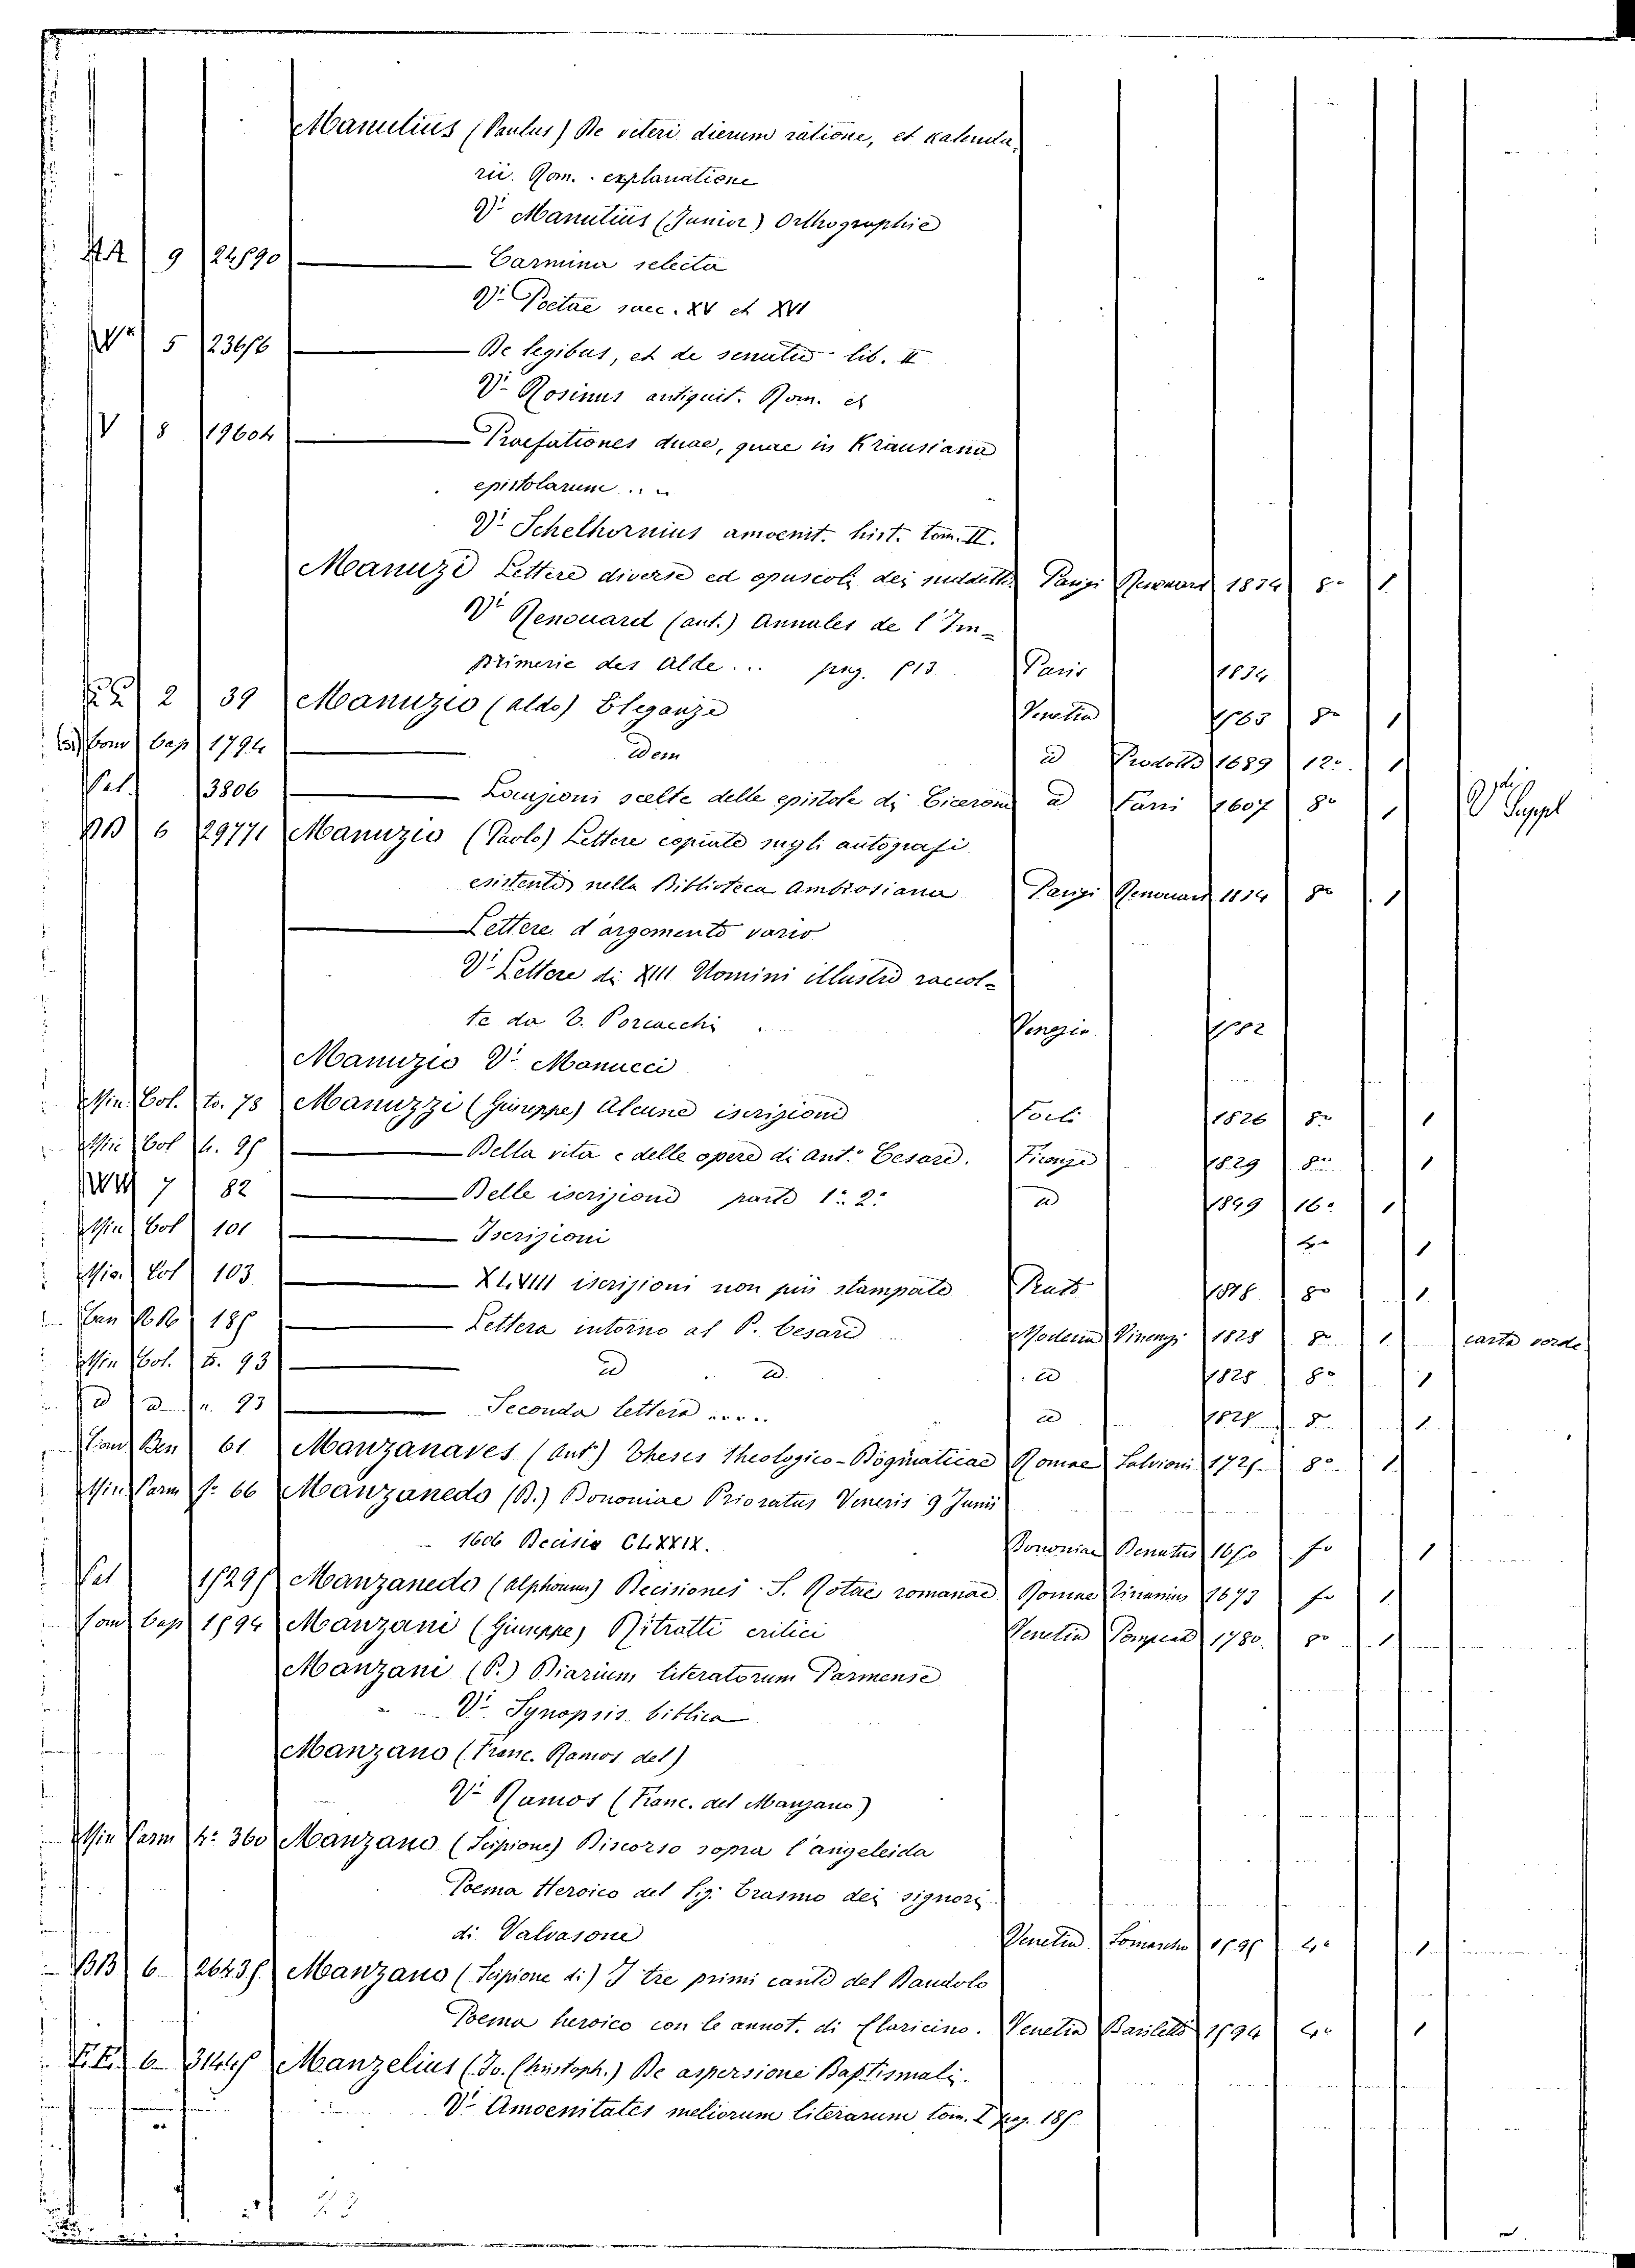 Manutius (Paulus) De veteri dierum ratione, et kalenda
rii. Rom. explanatione
V. Manutius (Junior) Orthographie
9 24590 Carmina selecta
V. Poetae saec. XV et XVI
5 De legibus, et de senatu lib. II
V. Rosinus antiquit. Rom. et
V 8 19604 Praefationes duae, quae in Krausiana
epistolarum ...
V. Schelhornius amoenit. hist. tom. II.
Manuzi Lettere diverse ed opuscoli dei suddetti Parigi Renouard 1834 8° 1
V. Renouard (ant.) Annales de l'Im-
primerie des Alde... pag. 513 Paris 1834
2 39 Manuzio (aldo) Eleganze Venetia 8° 1
Cap 1794 Idem id 1689 12° 1
Pal. 3806 Locuzioni scelte delle epistole di Cicerone id 1607 8° 1 V. Suppl
BB 6 29771 Manuzio (Paolo) Lettere copiate sugli autografi
esistenti nella Biblioteca Ambrosiana Parigi Renouard 1834 8° 1
Lettere d'argomento vario
V. Lettere di XIII Uomini illustri raccol-
te da T. Porcacchi Venezia 1582
Manuzio V. Manucci
Min. Bol. to. 78 Manuzzi (Giuseppe) Alcune iscrizioni Forlì 1826 8° 1
Min Bol Della vita e delle opere di Ant. Cesari. Firenze 1829 8° 1
7 82 Delle iscrizioni parte 1. 2. id 1849 16° 1
Min Bol 101 Iscrizioni 1
Min. Bol 103 XLVIII iscrizioni non più stampate Prato 8° 1
185 Lettera intorno al P. Cesari Modena Vincenzi 1828 8° 1 carta verde
Min Bol. 93 id id. id 1828 8° 1
id id 93 Seconda lettera .... id 1828 8° 1
Ben 61 Manzanares (Ant.) Theses Theologico-Dogmaticae Romae Salvioni 8° 1
Min Parm f. 66 Manzanedo (B.) Bononiae Prioratus Veneris 9 Junii
1606 Decisio CLXXIX. Bononiae Benatius 1650 fo 1
Pal 15295 Manzanedo (Alphonsus) Decisiones S. Rotae romanae Romae Tinassius 1673 fo 1
Cap 1594 Manzani (Giuseppe) Ritratti critici Venetia 1780 8° 1
Manzani (P.) Diarium literatorum Parmense
V. Synopsis biblica
Manzano (Franc. Ramos del)
V. Ramos (Franc. del Manzano)
Min Parm 4: 360 Manzano (Scipione) Discorso sopra l'angeleida
Poema Heroico del Sig. Erasmo dei signori
di Valvasone Venetia 1595 4° 1
BB 6 26435 Manzano (Scipione di) I tre primi canti del Dandolo
Poema heroico con le annot. di Claricino. Venetia Bariletti 1594 4° 1
6 31445 Manzelius (Jo. Christoph.) De aspersione Baptismali.
V. Amoenitates meliorum literarum tom. I pag. 185